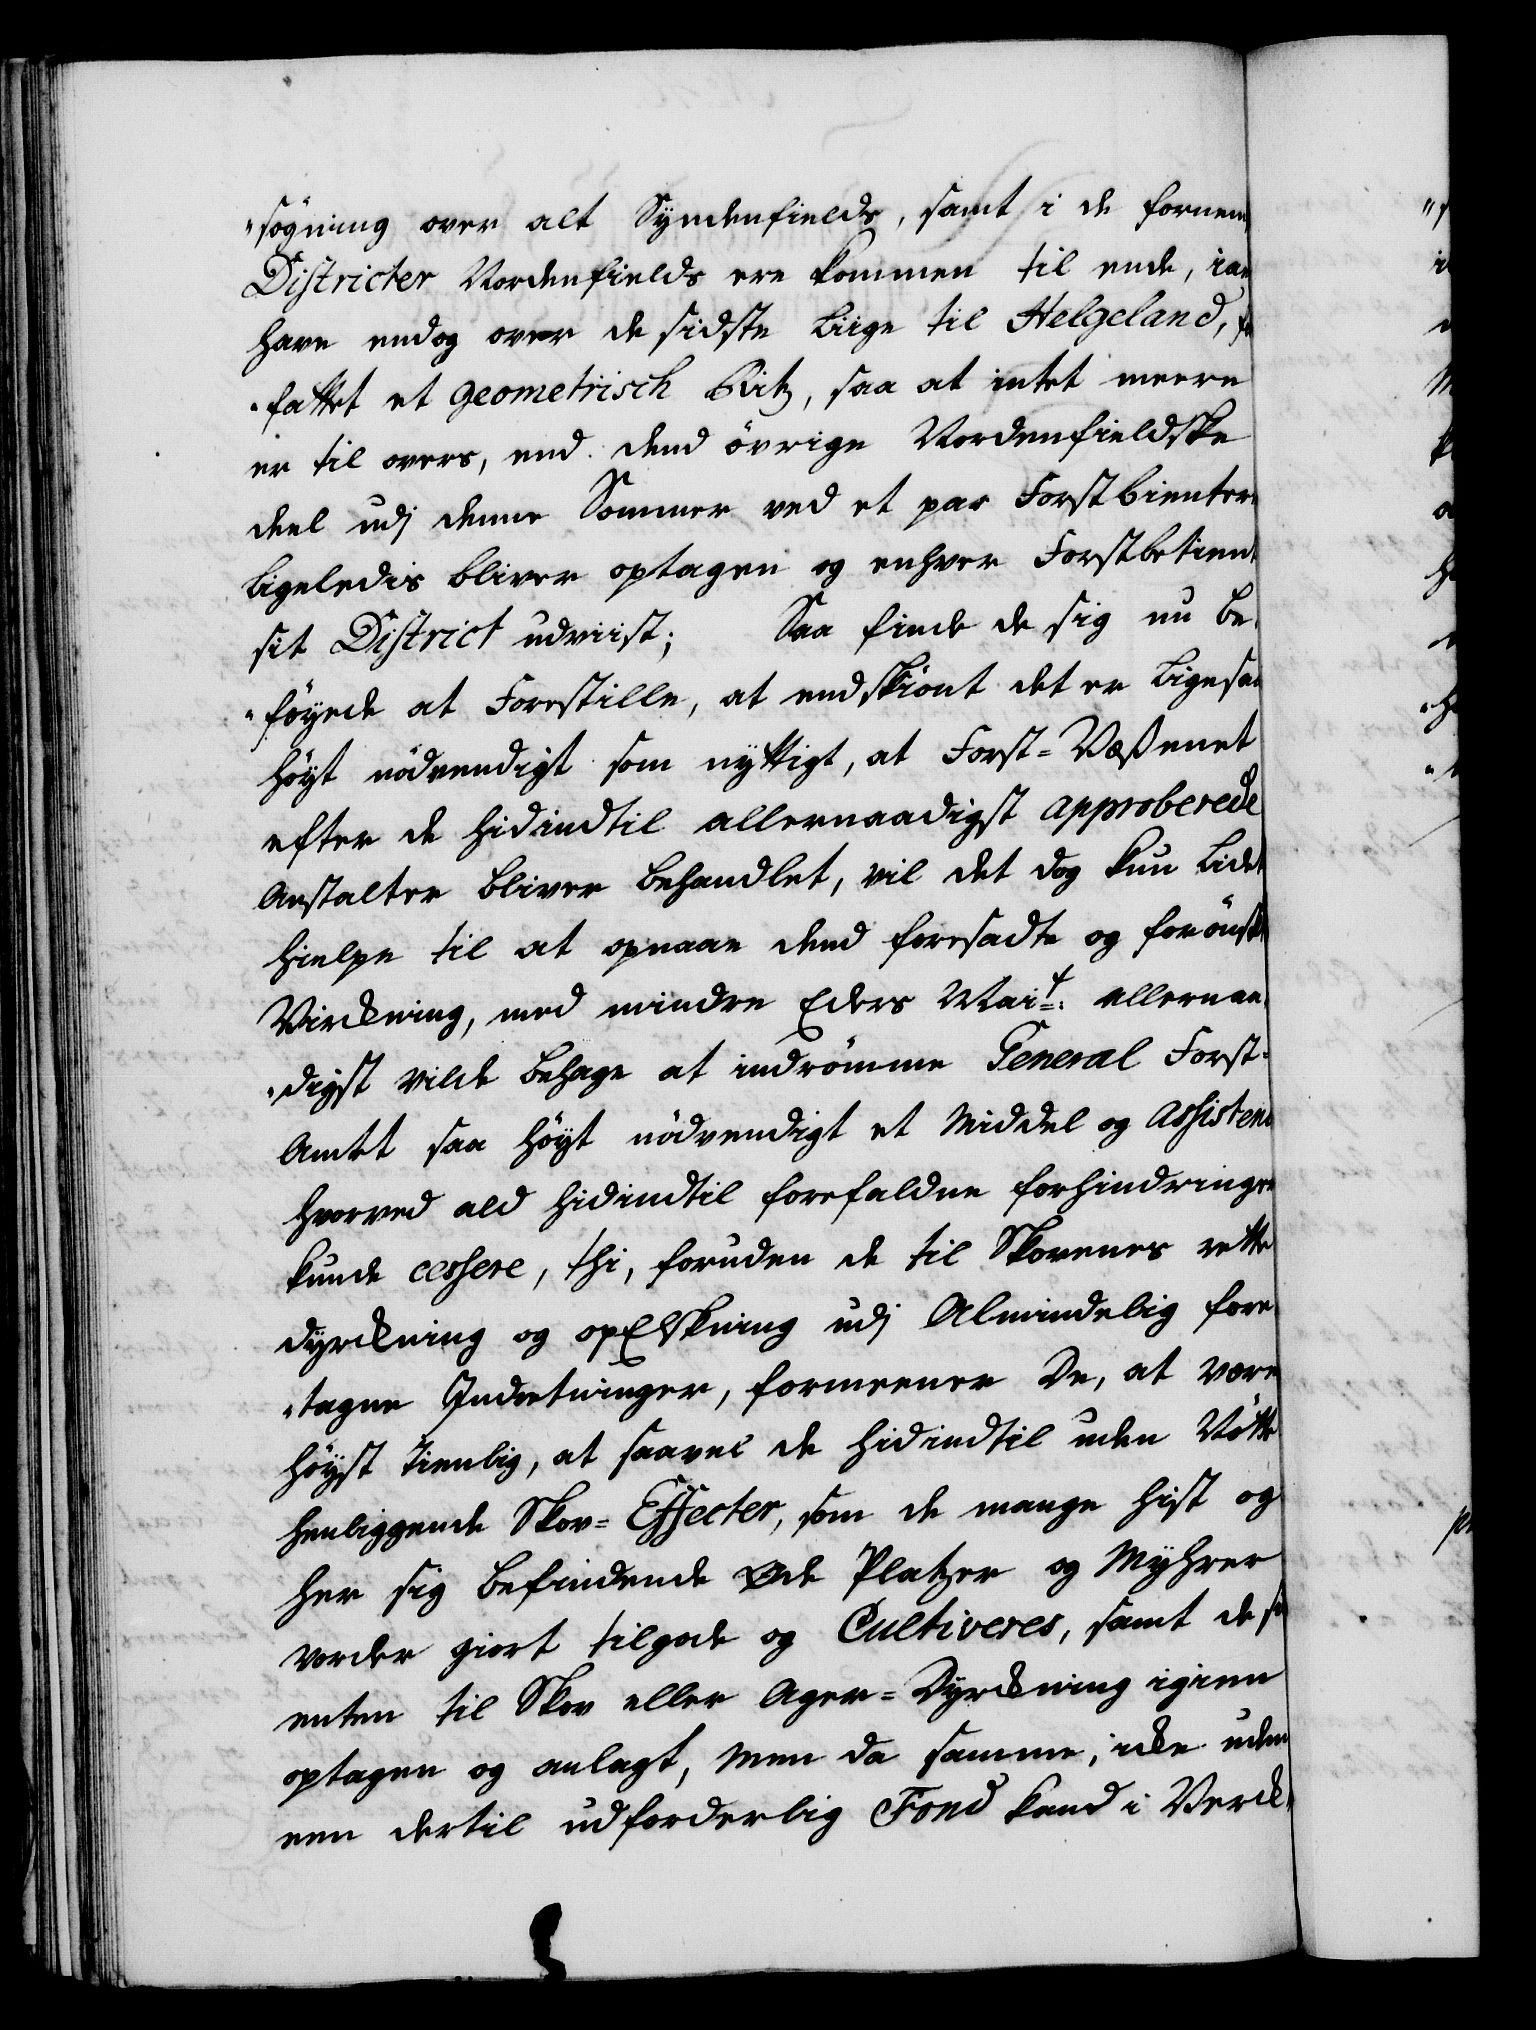 "søgning over alt Syndenfields, samt i de fornem
Districter Nordenfields ere kommen til ende, iae
have endog over de sidste Liige til Helgeland,
"fattet et geometrisch Ritz, saa at intet meere
er til overs, end dend övrige Nordenfieldske
deel udj denne Sommer ved et par Forstbienter
ligeledis bliver optagen og enhver Forstbetient
sit District udviist; Saa finde de sig nu be,
"föyede at Forestille, at endskiönt det er ligesaa
höyt nödvendigt som nyttigt, at Forst=Væßenet
efter de hidindtil allernaadigst approberede
Anstalter bliver behandlet, vil det dog kun lidet
hielpe til at opnaae dend foresadte og forönskte
Virckning, med mindre Eders Mait: allernaa,
"digst vilde behage at indrömme General Forst=
Amtet saa höyt nödvendigt et Middel og Assistence
hvorved ald hidindtil forefaldne forhindringer
kunde cessere, thi, foruden de til Skovenes rette
dyrckning og opElskning udj Almindelig fore
"tagne Indretninger, formeener De, at være
höyst tienlig, at saavel de hidindtil uden Nötte
henliggende Skov=Effecter, som de mange hist og
her sig befindende Øde Platzer og Myhrer
vorder giort tilgode og Cultiveres, samt de
enten til Skov eller Ager=Dyrckning igien
optagen og anlagt, Men da samme, icke uden
een dertil udforderlig Fond kand i Verck,